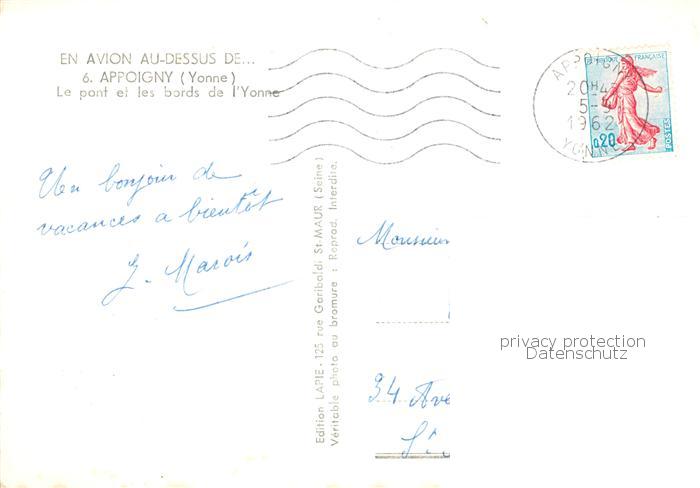 EN AVION AU-DESSUS DE...
6. APPOIGNY (Yonne)
Le pont et les bords de l'Yonne
20H4
5-
1962
YONNE
FRANÇAISE
0,20
POSTES
Un bonjour de
vacances a bientôt
J. Marois
Edition LAPIE - 125 rue Garibaldi St-MAUR (Seine)
Véritable photo au bromure : Reprod. Interdite.
Monsieur
34 Ave
privacy protection
Datenschutz